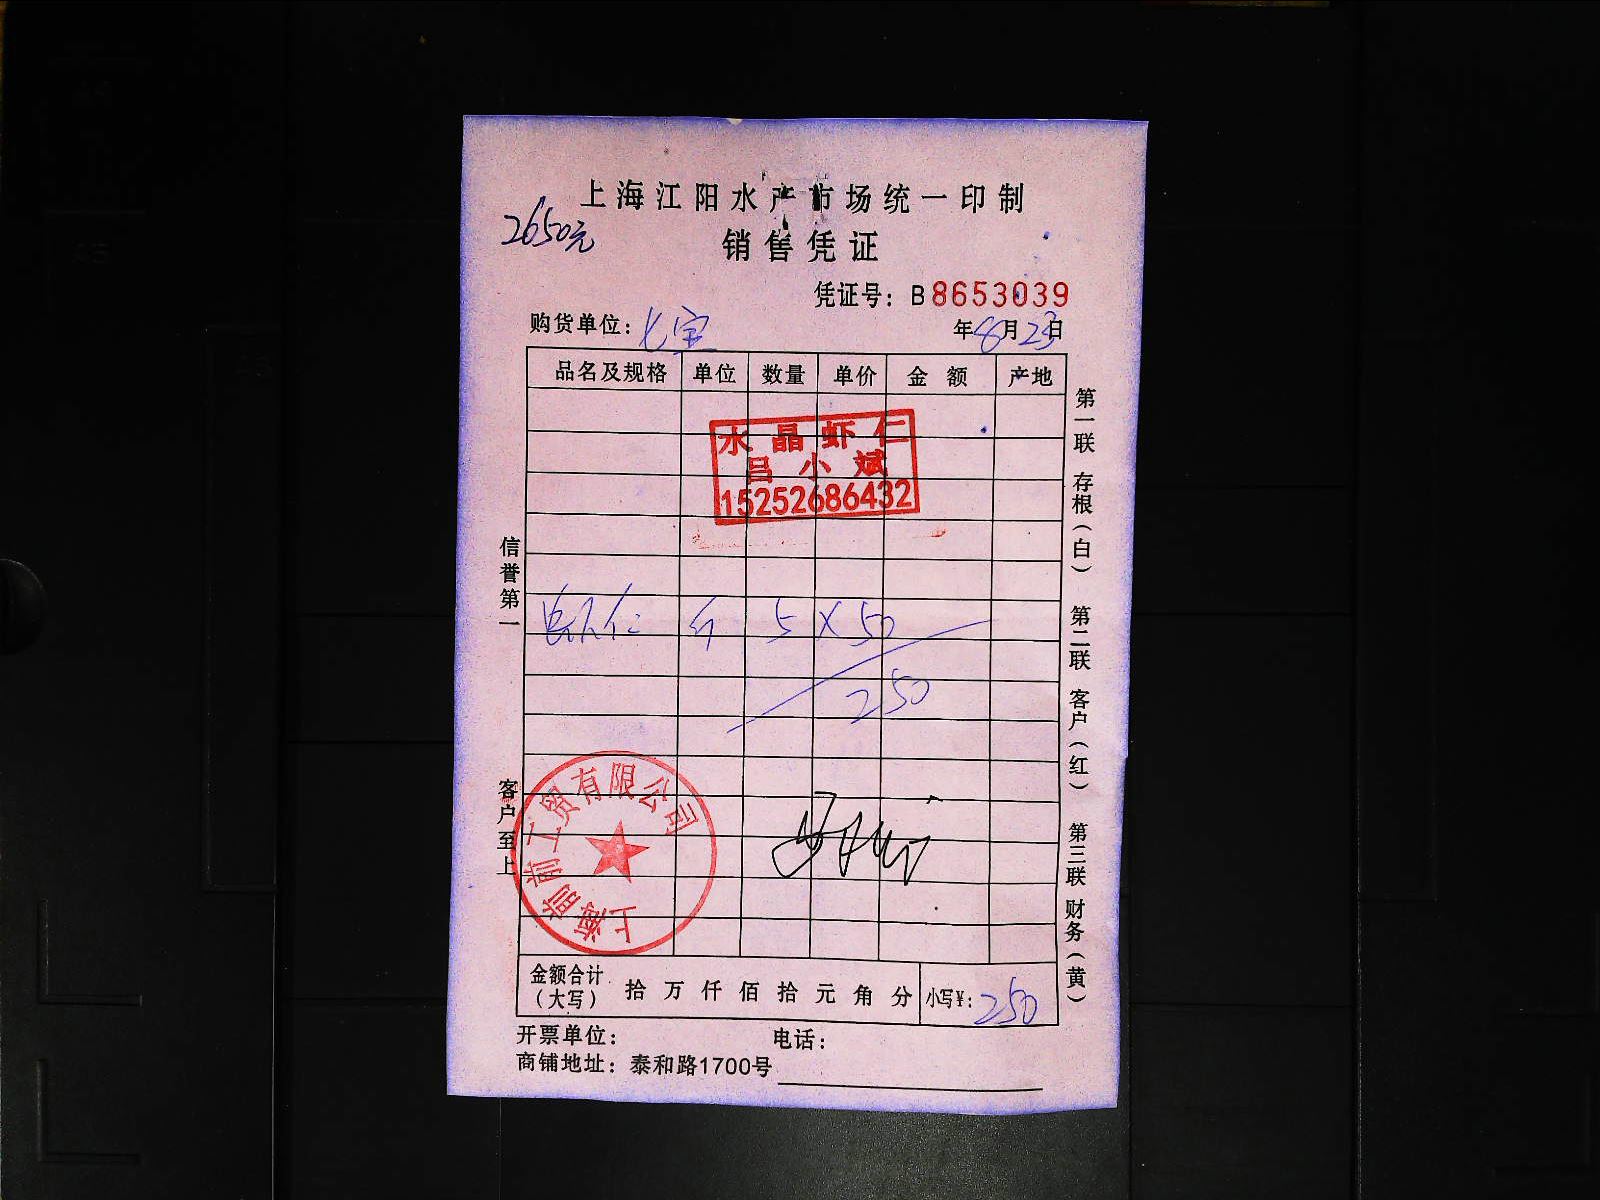 上海江阳水产市场统一印制
2650元
销售凭证
凭证号：B8653039
购货单位：七宝
年8月23日
品名及规格 单位 数量 单价 金额 产地
水晶虾仁
吕小斌
15252686432
仁 斤 5 X 50
250
上海前前工贸有限公司
金额合计（大写） 拾 万 仟 佰 拾 元 角 分 小写¥：250
开票单位： 电话：
商铺地址：泰和路1700号
信誉第一
客户至上
第一联 存根（白）
第二联 客户（红）
第三联 财务（黄）